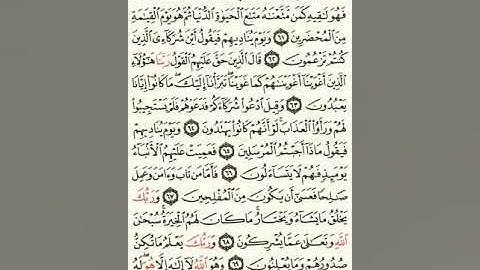 فَهُوَ لَٰقِيهِ كَمَن مَّتَّعْنَٰهُ مَتَٰعَ ٱلْحَيَوٰةِ ٱلدُّنْيَا ثُمَّ هُوَ يَوْمَ ٱلْقِيَٰمَةِ
مِنَ ٱلْمُحْضَرِينَ ٦١ وَيَوْمَ يُنَادِيهِمْ فَيَقُولُ أَيْنَ شُرَكَآءِيَ ٱلَّذِينَ
كُنتُمْ تَزْعُمُونَ ٦٢ قَالَ ٱلَّذِينَ حَقَّ عَلَيْهِمُ ٱلْقَوْلُ رَبَّنَا هَٰٓؤُلَآءِ
ٱلَّذِينَ أَغْوَيْنَآ أَغْوَيْنَٰهُمْ كَمَا غَوَيْنَا ۖ تَبَرَّأْنَآ إِلَيْكَ ۖ مَا كَانُوٓا۟ إِيَّانَا
يَعْبُدُونَ ٦٣ وَقِيلَ ٱدْعُوا۟ شُرَكَآءَكُمْ فَدَعَوْهُمْ فَلَمْ يَسْتَجِيبُوا۟
لَهُمْ وَرَأَوُا۟ ٱلْعَذَابَ ۚ لَوْ أَنَّهُمْ كَانُوا۟ يَهْتَدُونَ ٦٤ وَيَوْمَ يُنَادِيهِمْ
فَيَقُولُ مَاذَآ أَجَبْتُمُ ٱلْمُرْسَلِينَ ٦٥ فَعَمِيَتْ عَلَيْهِمُ ٱلْأَنۢبَآءُ
يَوْمَئِذٍ فَهُمْ لَا يَتَسَآءَلُونَ ٦٦ فَأَمَّا مَن تَابَ وَءَامَنَ وَعَمِلَ
صَٰلِحًا فَعَسَىٰٓ أَن يَكُونَ مِنَ ٱلْمُفْلِحِينَ ٦٧ وَرَبُّكَ
يَخْلُقُ مَا يَشَآءُ وَيَخْتَارُ ۗ مَا كَانَ لَهُمُ ٱلْخِيَرَةُ ۚ سُبْحَٰنَ
ٱللَّهِ وَتَعَٰلَىٰ عَمَّا يُشْرِكُونَ ٦٨ وَرَبُّكَ يَعْلَمُ مَا تُكِنُّ
صُدُورُهُمْ وَمَا يُعْلِنُونَ ٦٩ وَهُوَ ٱللَّهُ لَآ إِلَٰهَ إِلَّا هُوَ ۖ لَهُ